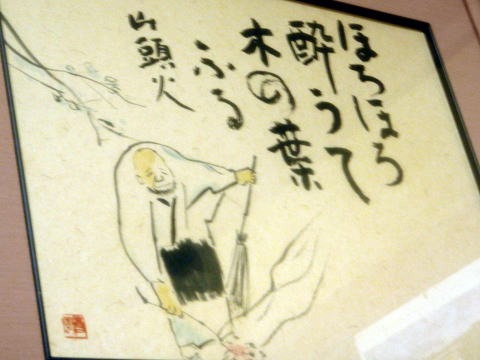 ほろほろ
酔うて
木の葉
ふる
山頭火